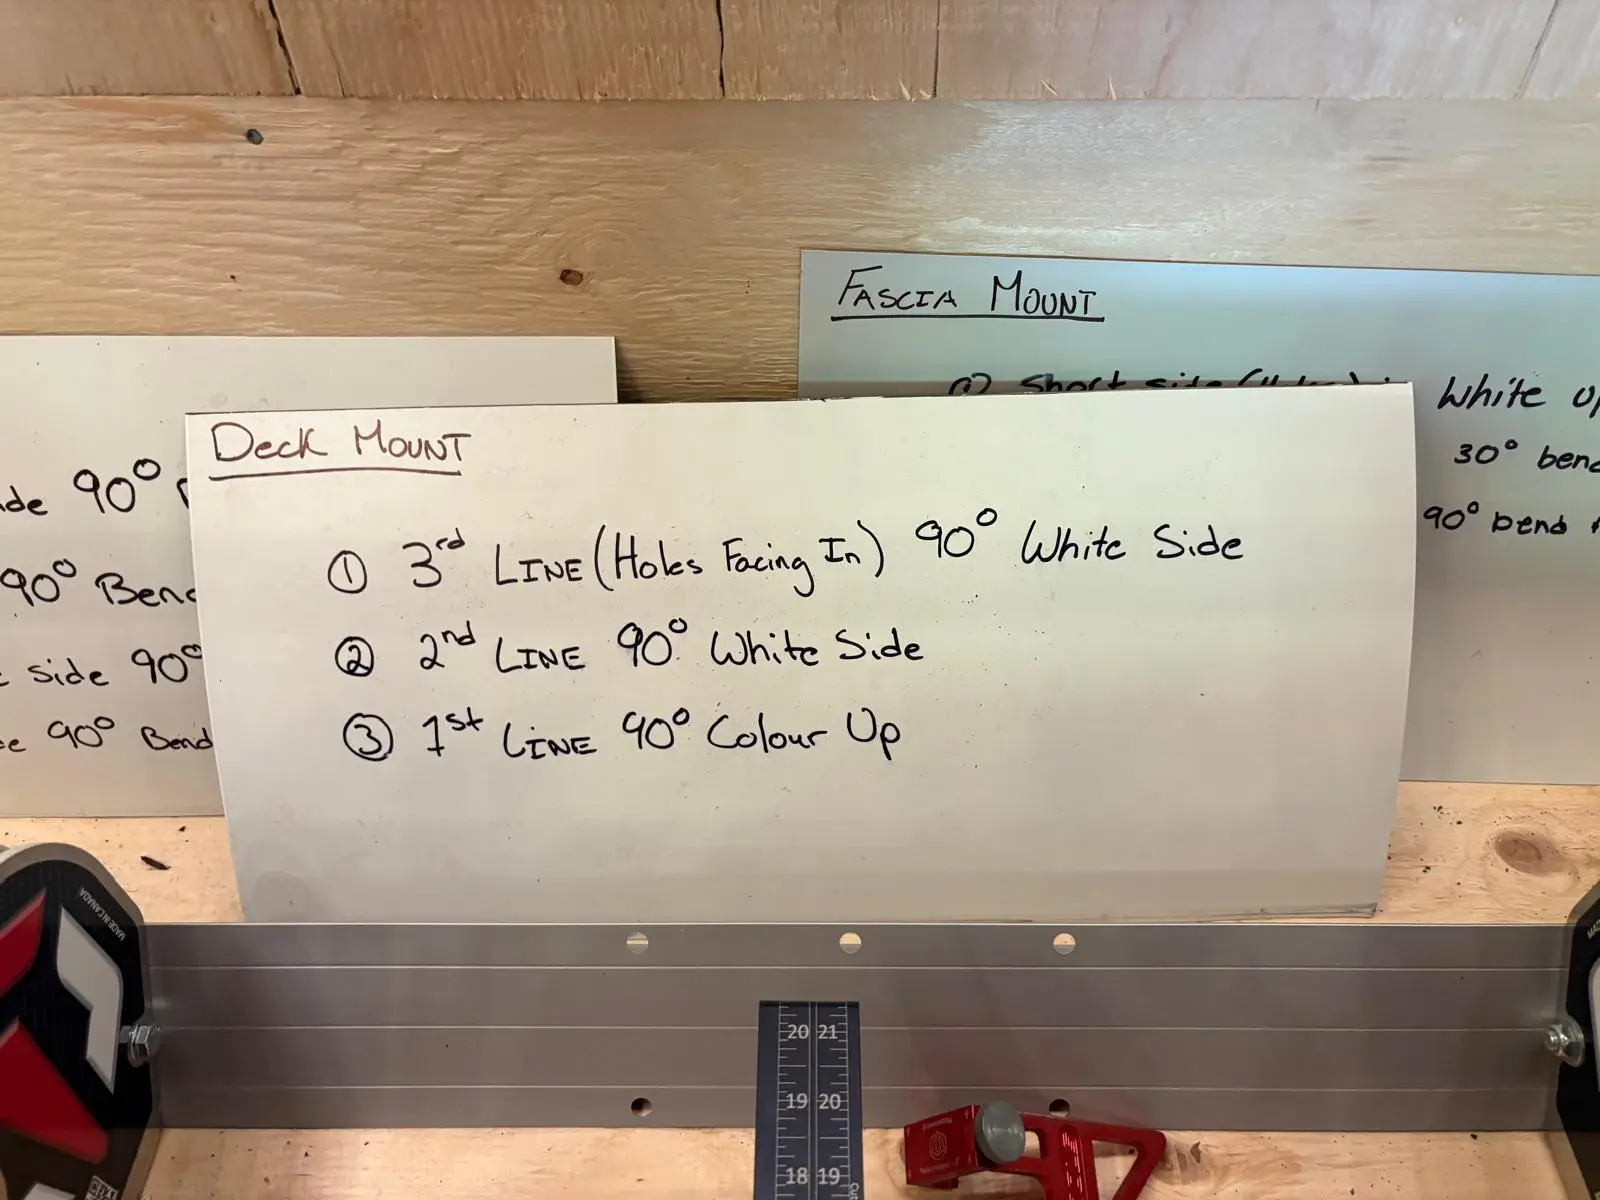 Fascia Mount
Short side
White
30° bend
90° bend
Deck Mount
① 3rd Line (Holes Facing In) 90° White Side
② 2nd Line 90° White Side
③ 1st Line 90° Colour Up
90°
90° Bend
side 90°
90° Bend
MADE IN CANADA
20 21
19 20
18 19